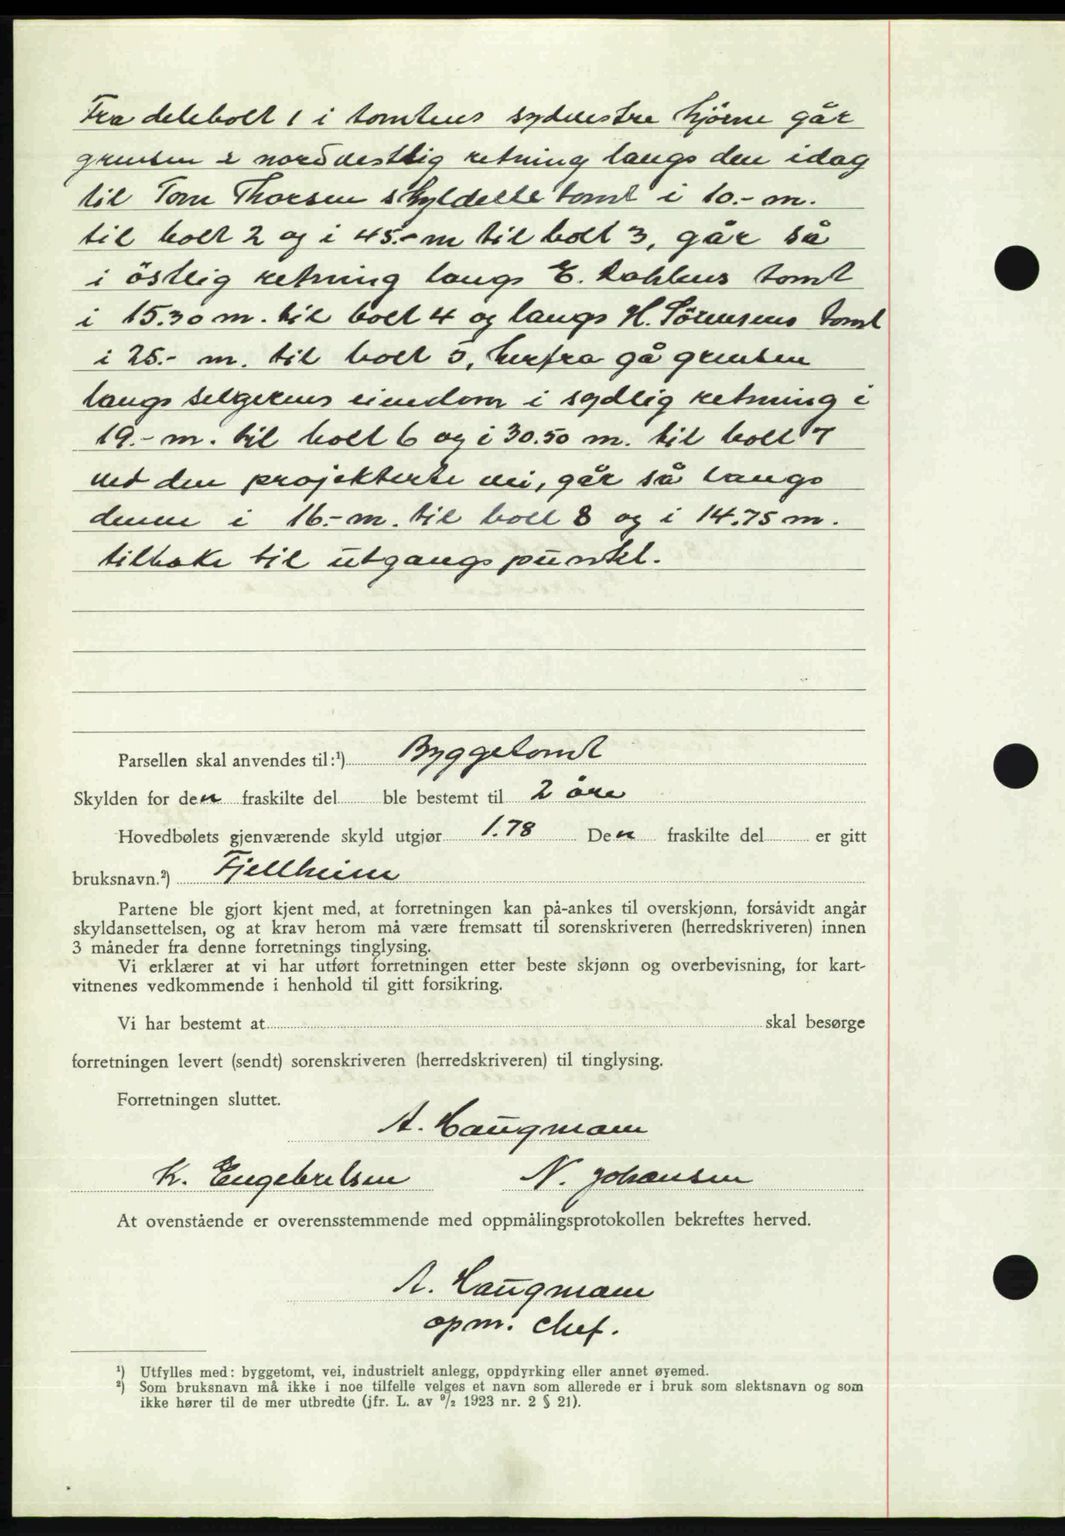 Fra delebolt 1 i tomtens sydvestre hjörne går
grensen i nordvestlig retning langs den idag
til Tom Thorsen skyldelte tomt i 10.- m.
til bolt 2 og i 45.- m til bolt 3, går så
i östlig retning langs E. Dahlens tomt
i 15.30 m. til bolt 4 og langs H. Sörensens tomt
i 25.- m. til bolt 5, herfra gå grensen
langs selgerens eiendom i sydlig retning i
19.- m. til bolt 6 og i 30.50 m. til bolt 7
ved den projekterte vei, går så langs
denne i 16.- m. til bolt 8 og i 14.75 m.
tilbake til utgangspunktet.
Parsellen skal anvendes til:¹) Byggetomt
Skylden for den fraskilte del ble bestemt til 2 öre
Hovedbølets gjenværende skyld utgjør 1.78 Den fraskilte del er gitt
bruksnavn.²) Fjellheim
Partene ble gjort kjent med, at forretningen kan på-ankes til overskjønn, forsåvidt angår
skyldansettelsen, og at krav herom må være fremsatt til sorenskriveren (herredskriveren) innen
3 måneder fra denne forretnings tinglysing.
Vi erklærer at vi har utført forretningen etter beste skjønn og overbevisning, for kart-
vitnenes vedkommende i henhold til gitt forsikring.
Vi har bestemt at skal besørge
forretningen levert (sendt) sorenskriveren (herredskriveren) til tinglysing.
Forretningen sluttet.
A. Haugmann
K. Engebretsen N. Johansen
At ovenstående er overensstemmende med oppmålingsprotokollen bekreftes herved.
A. Haugmann
opm. chef.
¹) Utfylles med: byggetomt, vei, industrielt anlegg, oppdyrking eller annet øyemed.
²) Som bruksnavn må ikke i noe tilfelle velges et navn som allerede er i bruk som slektsnavn og som
ikke hører til de mer utbredte (jfr. L. av ⁹/₂ 1923 nr. 2 § 21).